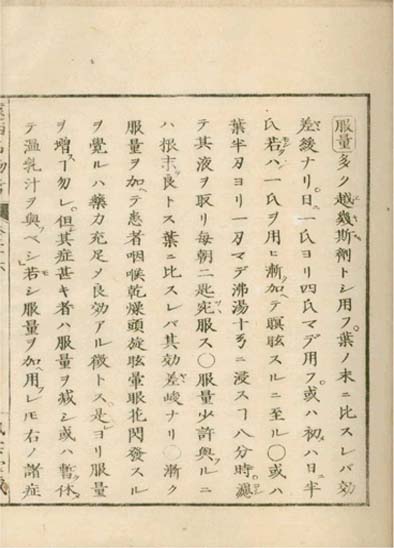 服量 多ク越幾斯劑トシ用フ。葉ノ末ニ比スレバ効
差綾ナリ。日ニ一氏ヨリ四氏マデ用フ。或ハ初ハ日ニ半
氏若ハ一氏ヲ用ヒ漸加テ瞑眩スルニ至ル〇或ハ
葉半刃ヨリ一刃マデ沸湯十ヲニ浸スヿ八分時瀘
テ其液ヲ取リ毎朝二匙宛服ス〇服量少許與ルニ
ハ根末良トス葉ニ比スレバ其効差峻ナリ〇漸ク
服量ヲ加ヘテ患者咽喉乾燥頭旋眩暈眼花閃發スル
ヲ覺ルハ藥力充足メ良効アル徴トス。是ヨリ服量
ヲ増ヿ勿レ。但其症甚キ者ハ服量ヲ減シ或ハ暫休
テ溫乳汁ヲ與ベシ若シ服量ヲ加ヘ用フレモ右ノ諸症